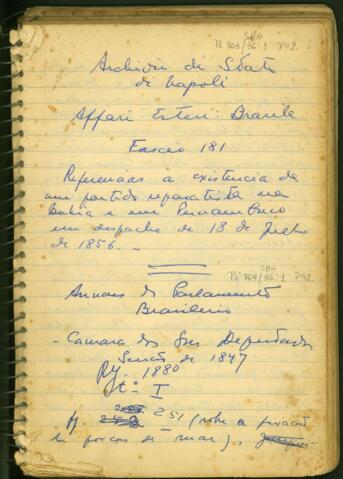 SBH
Pi 369/36:1 P42
Archivio di Stato
di Napoli
Affari Esteri: Brasile
Fascio 181
Referencias a existencia de
um partido separatista na
Bahia e em Pernambuco
em despacho de 18 de Julho
de 1856. -
SBH
Pi 369/36:1 P42
Annaes do Parlamento
Brasileiro
- Camara dos Srs Deputados
Sessão de 1847
Rj. 1880
tº I
p. 251 (sobre a fixação
de forças de mar),